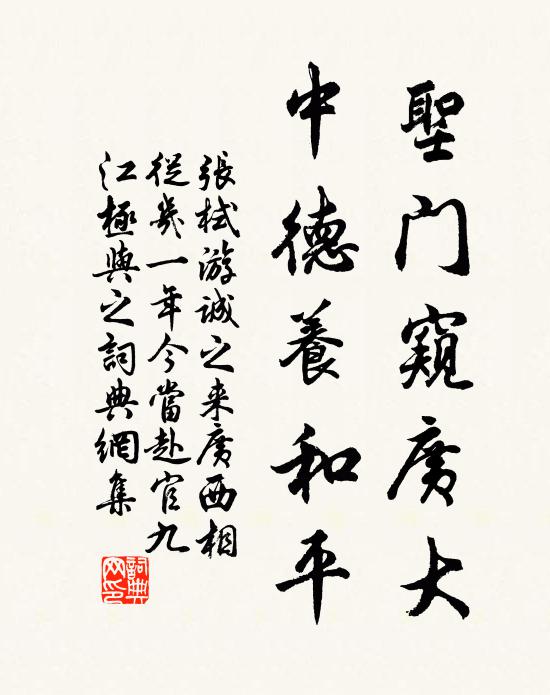 聖門窺廣大
中德養和平
張栻游誠之来廣西相
從幾一年今當赴官九
江極與之詞典網集
詞典網印